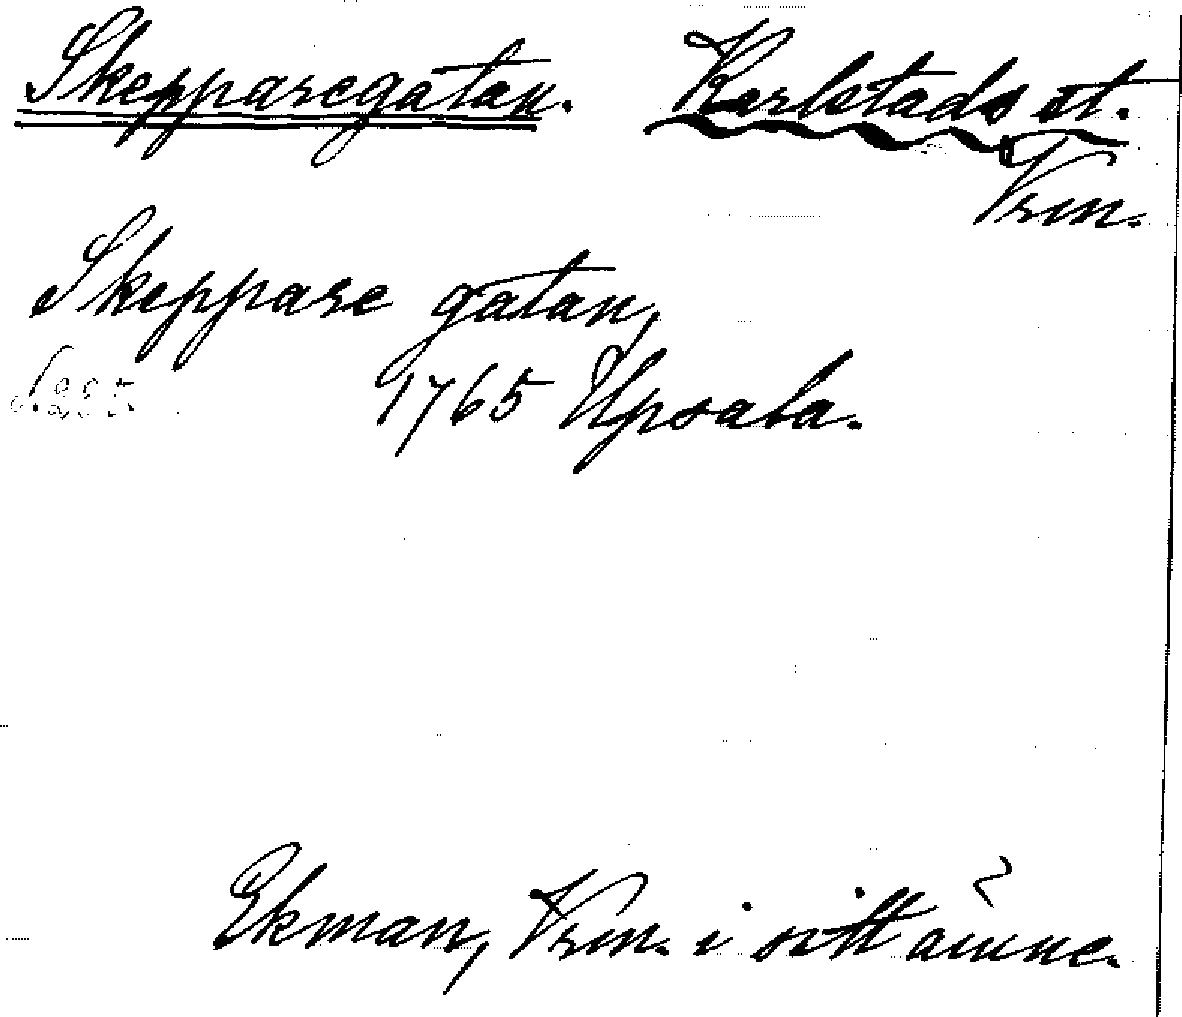 Skepparegatan. Karlstads st.
Vrm.
Skeppare gatan,
S. 225.
1765 Upsala.
Ekman, Vrm. i sitt ämne.